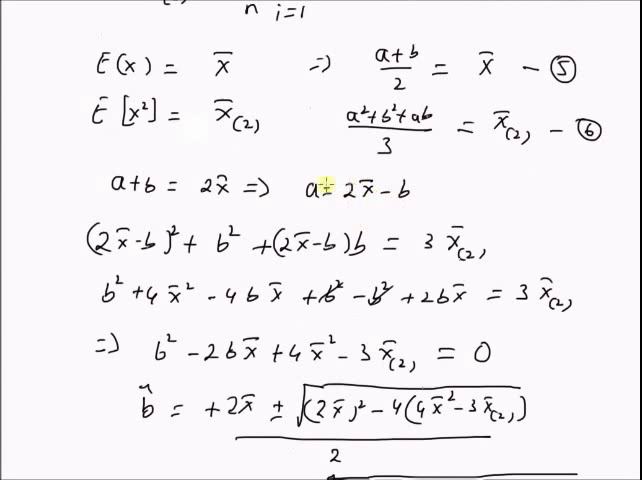 n i=1
E(x) = x̄ => (a+b)/2 = x̄ - ⑤
E[x²] = x̄₍₂₎ (a²+b²+ab)/3 = x̄₍₂₎ - ⑥
a+b = 2x̄ => a = 2x̄ - b
(2x̄-b)² + b² + (2x̄-b)b = 3x̄₍₂₎
b² + 4x̄² - 4bx̄ + b² - b² + 2bx̄ = 3x̄₍₂₎
=> b² - 2bx̄ + 4x̄² - 3x̄₍₂₎ = 0
b̂ = +2x̄ ± √((2x̄)² - 4(4x̄² - 3x̄₍₂₎)) / 2